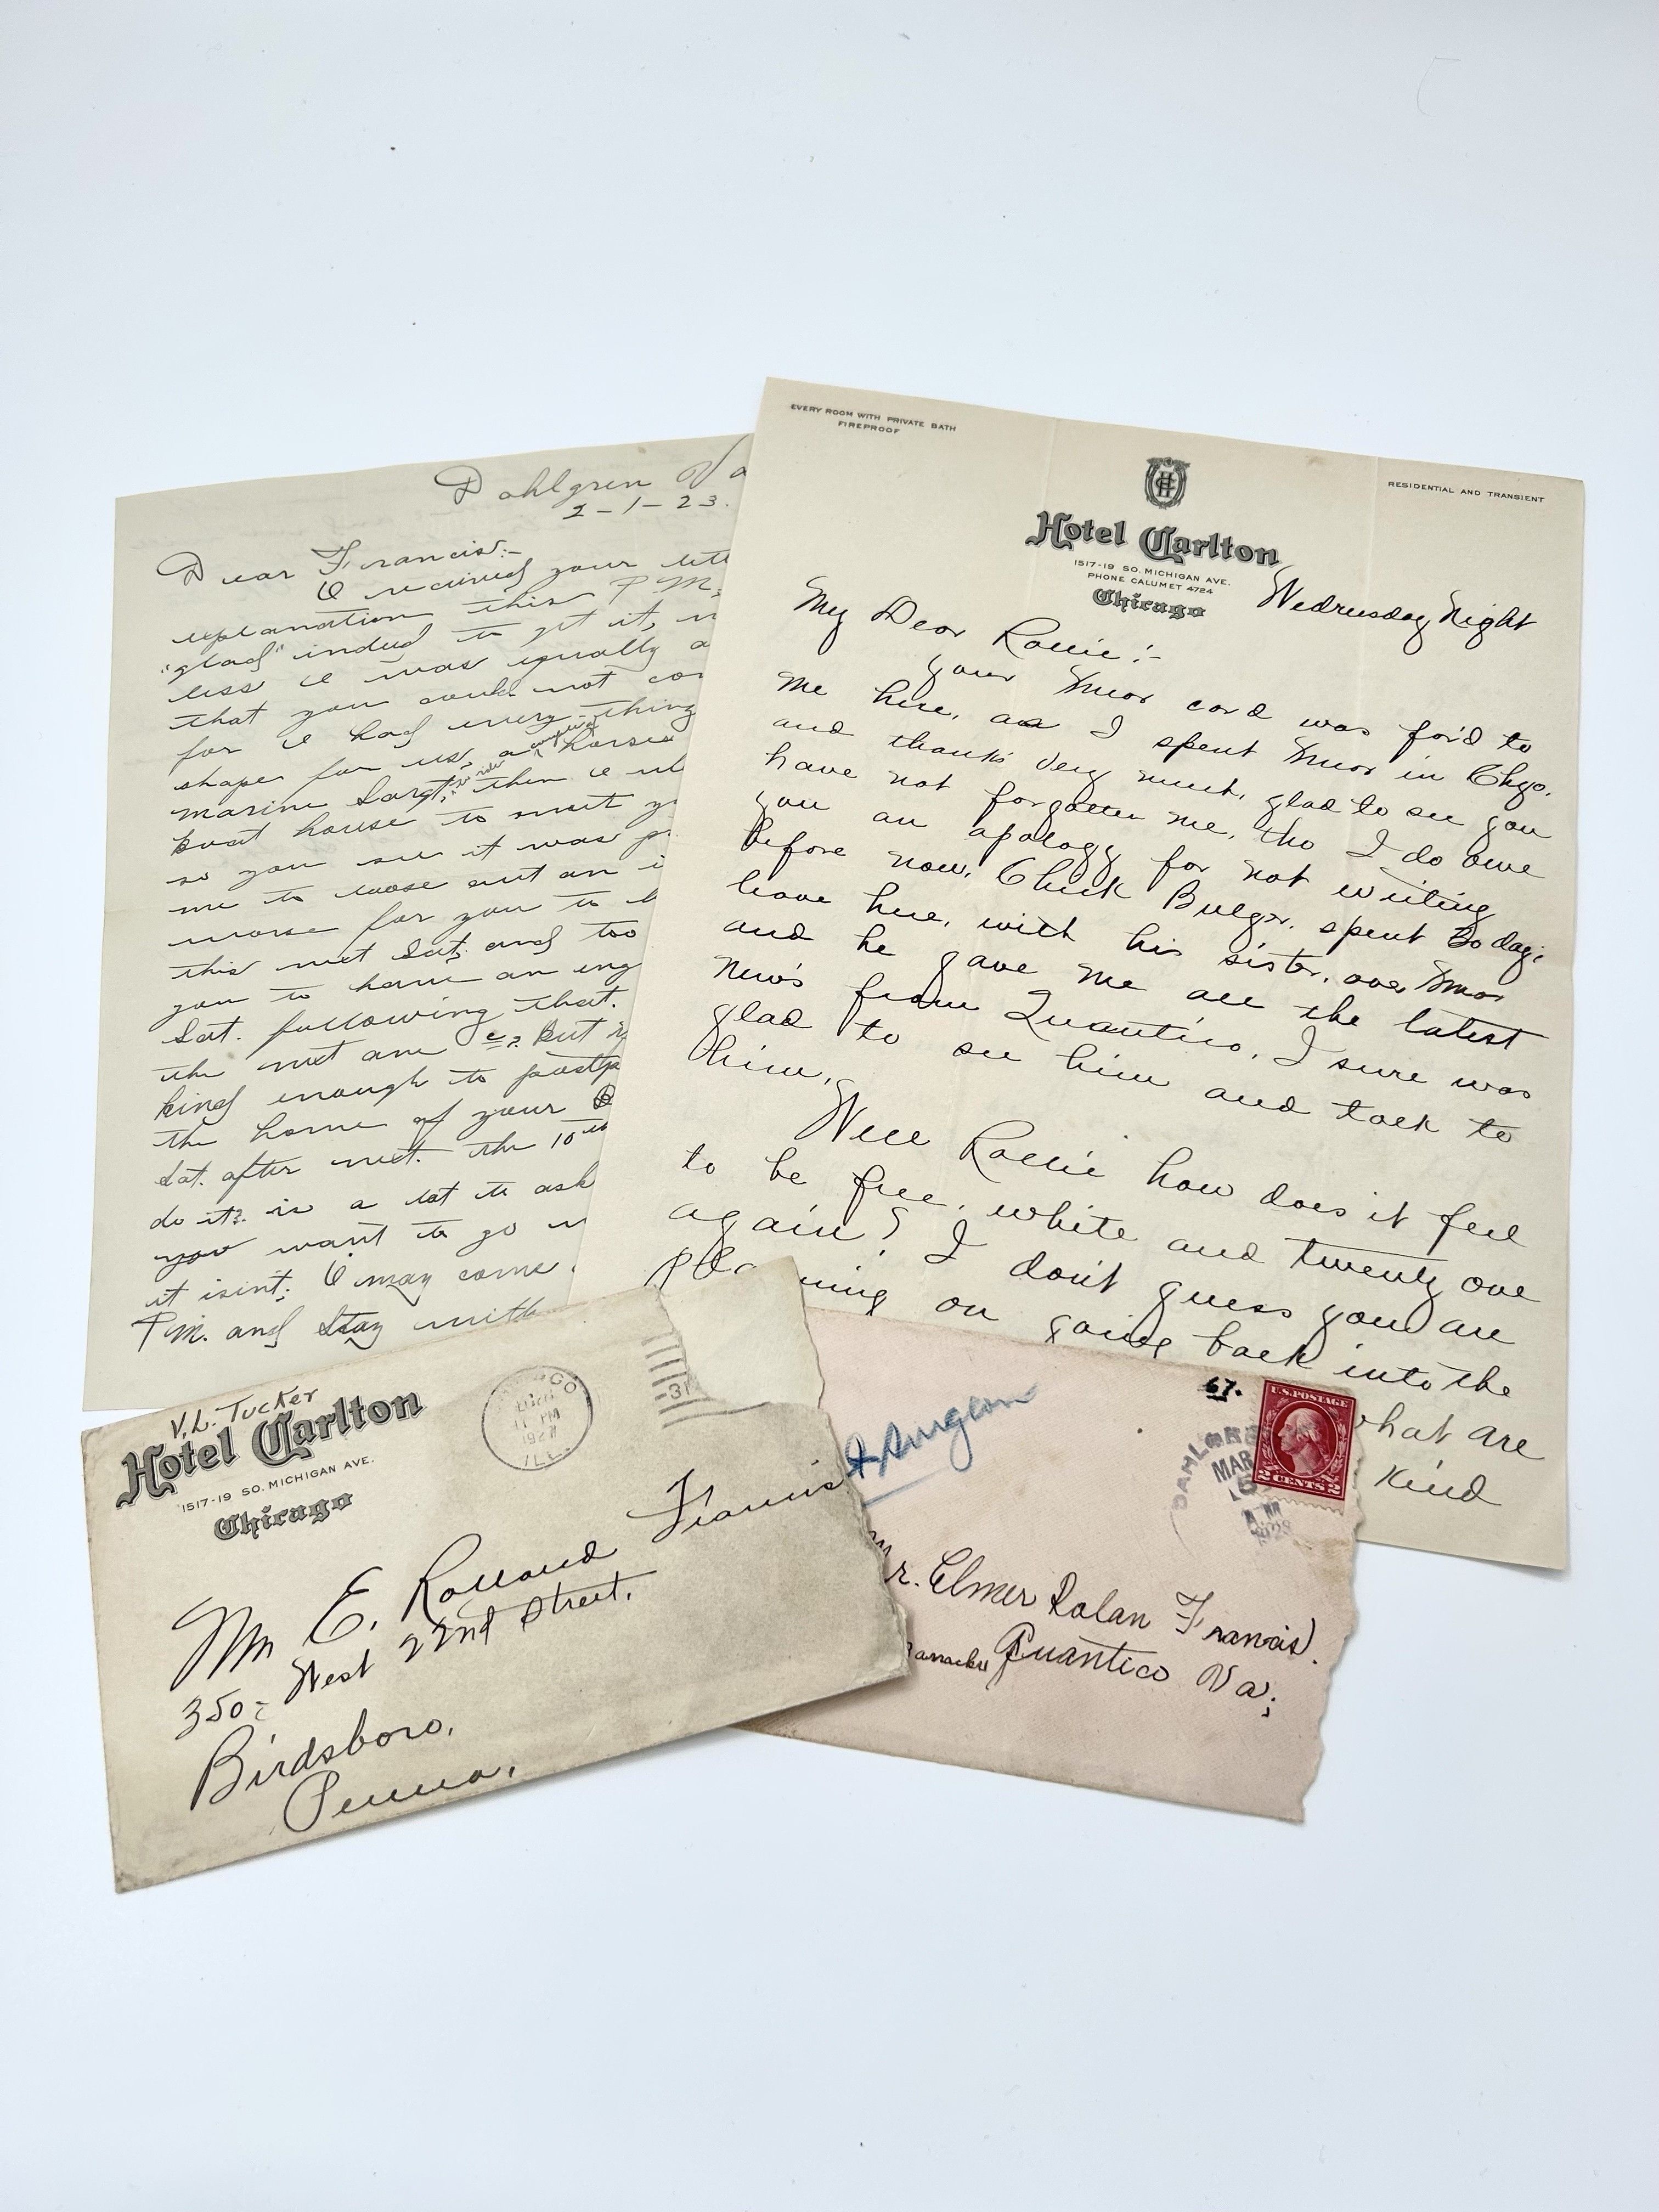 Dahlgren Va
2-1-23.
Dear Francis:-
I received your
explanation this P.M.
"glad" indeed to get it,
less I was equally
that you could not
for I had every-thing
shape for us, a horse
marine Sargt; then I
boat house to meet
so you see it was
me to loose out an
worse for you to
this next Sat. and too
you to have an eng
Sat. following that.
the next one But
kind enough to postp
the home of your
Sat. after next. the 10th
do it? is a lot to ask
you want to go
it isint; I may come
P.M. and stay with
EVERY ROOM WITH PRIVATE BATH
FIREPROOF
RESIDENTIAL AND TRANSIENT
Hotel Carlton
1517-19 SO. MICHIGAN AVE.
PHONE CALUMET 4724
Chicago
Wednesday Night
My Dear Rollie:-
your Xmas card was for'd to
me here, as I spent Xmas in Chgo.
and thanks very much, glad to see you
have not forgotten me, tho I do owe
you an apology for not writing
before now. Chick Bulger, spent 30 days
leave here, with his sister, over Xmas
and he gave me all the latest
news from Quantico, I sure was
glad to see him and talk to
him.
Well Rollie how does it feel
to be free, white and twenty one
again? I don't guess you are
planning on going back into the
what are
kind
V.L. Tucker
Hotel Carlton
1517-19 SO. MICHIGAN AVE.
Chicago
11 PM
1927
ILL.
Mr E. Rolland Francis
350 - West 22nd Street.
Birdsboro,
Penna.
Surgeon
67.
U.S. POSTAGE
2 CENTS 2
DAHLGRE
MAR
A M
Mr. Elmer Rolan Francis.
Barracks Quantico Va;